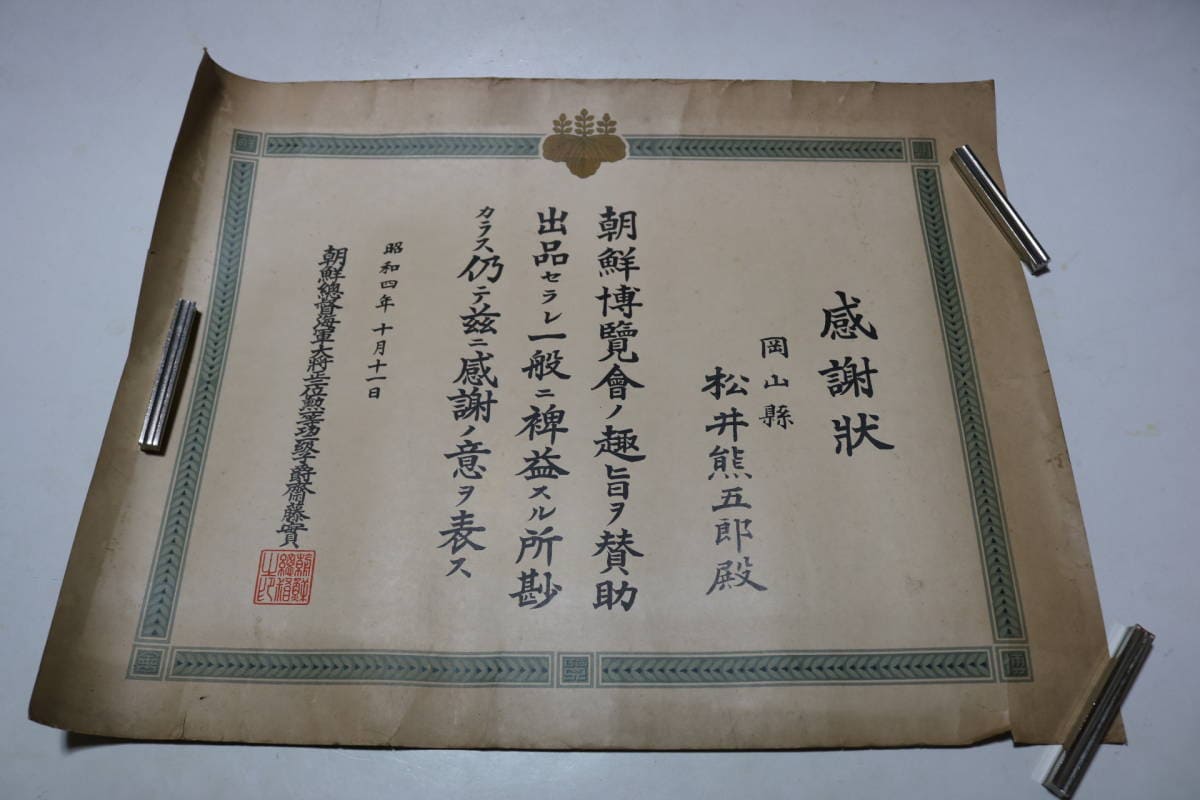 感謝狀
岡山縣
松井熊五郎殿
朝鮮博覽會ノ趣旨ヲ賛助
出品セラレ一般ニ裨益スル所尠
カラス仍テ茲ニ感謝ノ意ヲ表ス
昭和四年十月十一日
朝鮮總督海軍大將正二位勲一等功二級子爵齋藤實
朝鮮總督之印